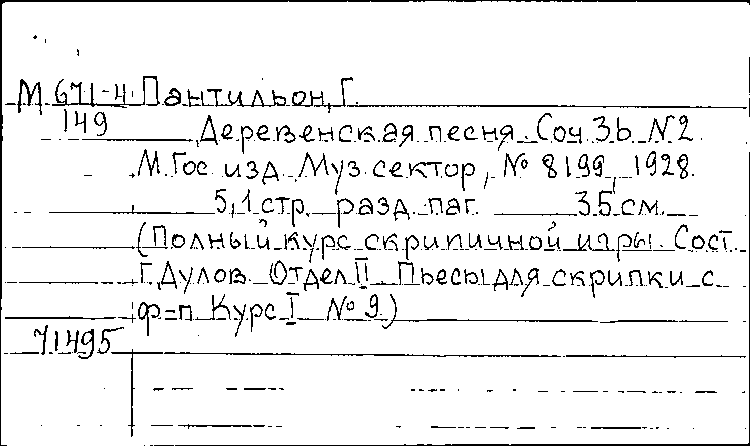 М 671-4 Пантильон, Г.
149 Деревенская песня. Соч. 3b N2
М. Гос. изд. Муз. сектор, № 8199, 1928.
5,1 стр. разд. паг. 35 см.
(Полный курс скрипичной игры. Сост.
Г. Дулов. Отдел II Пьесы для скрипки с
ф=п. Курс I № 9.)
71495